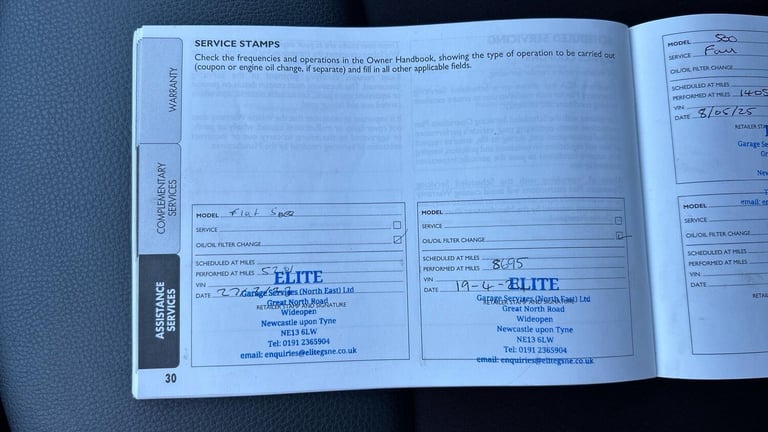 SERVICE STAMPS
Check the frequencies and operations in the Owner Handbook, showing the type of operation to be carried out
(coupon or engine oil change, if separate) and fill in all other applicable fields.
WARRANTY
COMPLEMENTARY
SERVICES
ASSISTANCE
SERVICES
MODEL Fiat 500
SERVICE
OIL/OIL FILTER CHANGE
SCHEDULED AT MILES
PERFORMED AT MILES
VIN
DATE
RETAILER STAMP AND SIGNATURE
ELITE
Garage Services (North East) Ltd
Great North Road
Wideopen
Newcastle upon Tyne
NE13 6LW
Tel: 0191 2365904
email: enquiries@elitegsne.co.uk
30
MODEL
SERVICE
OIL/OIL FILTER CHANGE
SCHEDULED AT MILES
PERFORMED AT MILES 8695
VIN
DATE 19-4-
RETAILER STAMP AND SIGNATURE
ELITE
Garage Services (North East) Ltd
Great North Road
Wideopen
Newcastle upon Tyne
NE13 6LW
Tel: 0191 2365904
email: enquiries@elitegsne.co.uk
MODEL 500
SERVICE Full
OIL/OIL FILTER CHANGE
SCHEDULED AT MILES
PERFORMED AT MILES 1405
VIN
DATE 8/05/25
RETAILER STA
Garage Se
email: e
MODEL
SERVICE
OIL/OIL FILTER CHANGE
SCHEDULED AT MILES
PERFORMED AT MILES
VIN
DATE
RETAIL